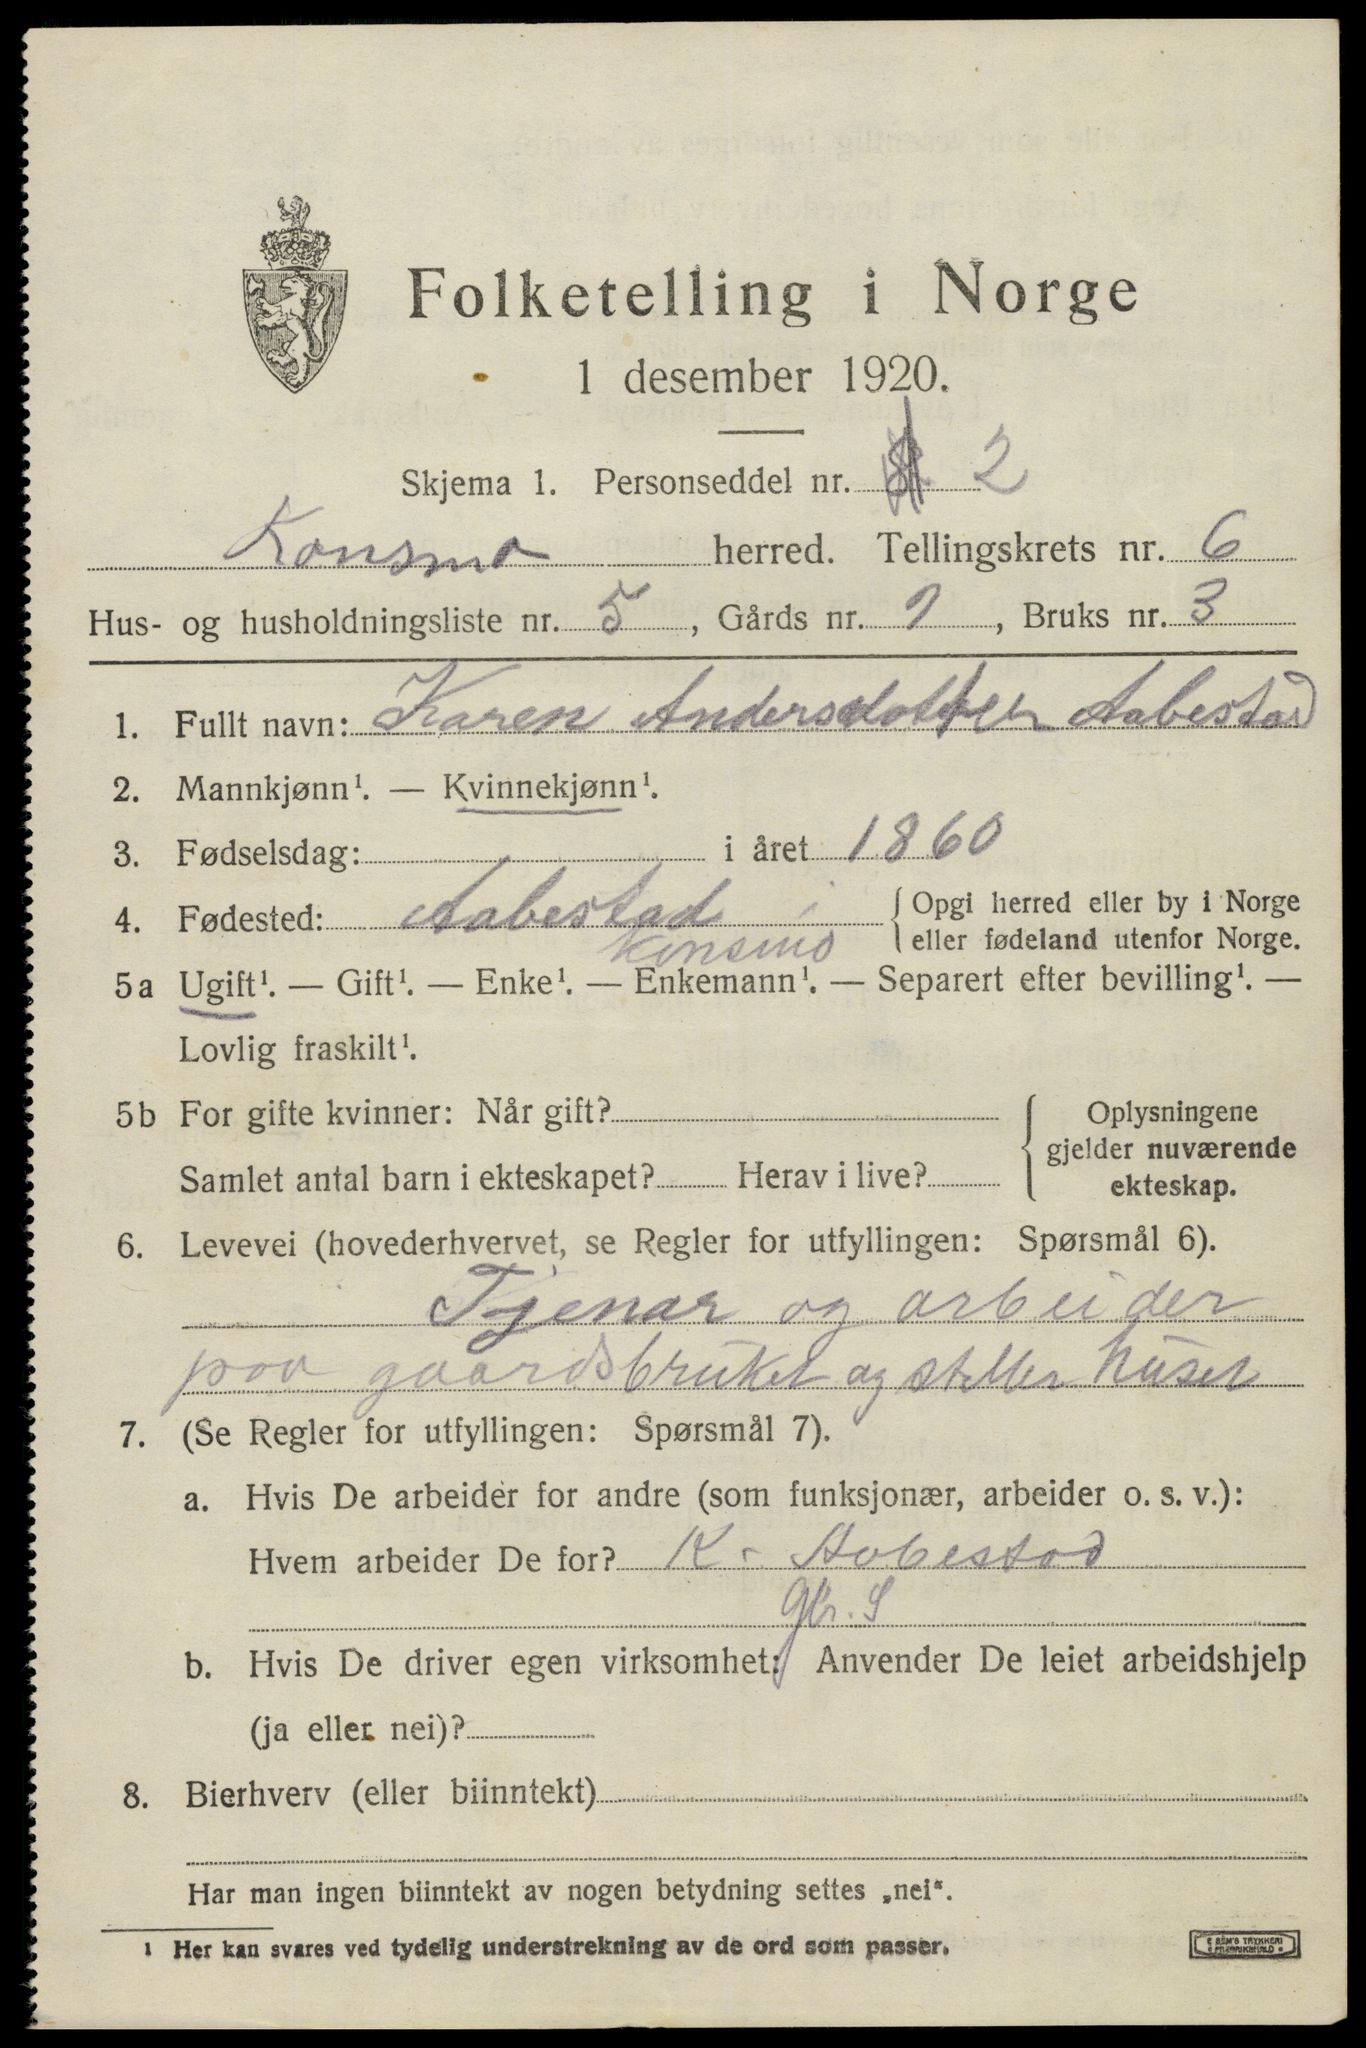 Folketelling i Norge
1 desember 1920.
Skjema 1. Personseddel nr. 2
Konsmo herred. Tellingskrets nr. 6
Hus- og husholdningsliste nr. 5, Gårds nr. 1, Bruks nr. 3
1. Fullt navn: Karen Andersdotter Aabestad
2. Mannkjønn¹. — Kvinnekjønn¹.
3. Fødselsdag: i året 1860
4. Fødested: Aabestad i { Opgi herred eller by i Norge
Konsmo eller fødeland utenfor Norge.
5a Ugift¹. — Gift¹. — Enke¹. — Enkemann¹. — Separert efter bevilling¹. —
Lovlig fraskilt¹.
5b For gifte kvinner: Når gift? { Oplysningene
gjelder nuværende
Samlet antal barn i ekteskapet? Herav i live? ekteskap.
6. Levevei (hovederhvervet, se Regler for utfyllingen: Spørsmål 6).
Tjenar og arbeider
paa gaardsbruket og steller huset
7. (Se Regler for utfyllingen: Spørsmål 7).
a. Hvis De arbeider for andre (som funksjonær, arbeider o. s. v.):
Hvem arbeider De for? K. Aabestad
gbr. S
b. Hvis De driver egen virksomhet: Anvender De leiet arbeidshjelp
(ja eller nei)?
8. Bierhverv (eller biinntekt)
Har man ingen biinntekt av nogen betydning settes „nei“.
¹ Her kan svares ved tydelig understrekning av de ord som passer.
TRYKKERI
FREDRIKSHALD